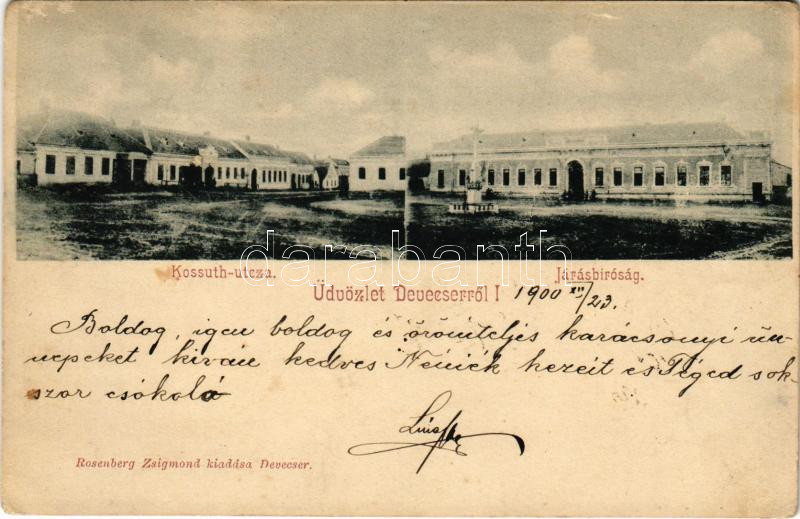 darabanth
Kossuth-utcza.
Járásbiróság.
Üdvözlet Devecserről! 1900 XII/23.
Boldog, igen boldog és örömteljes karácsonyi ün-
nepeket kíván kedves Nénik kezeit és Téged sok-
szor csókoló
Rosenberg Zsigmond kiadása Devecser.